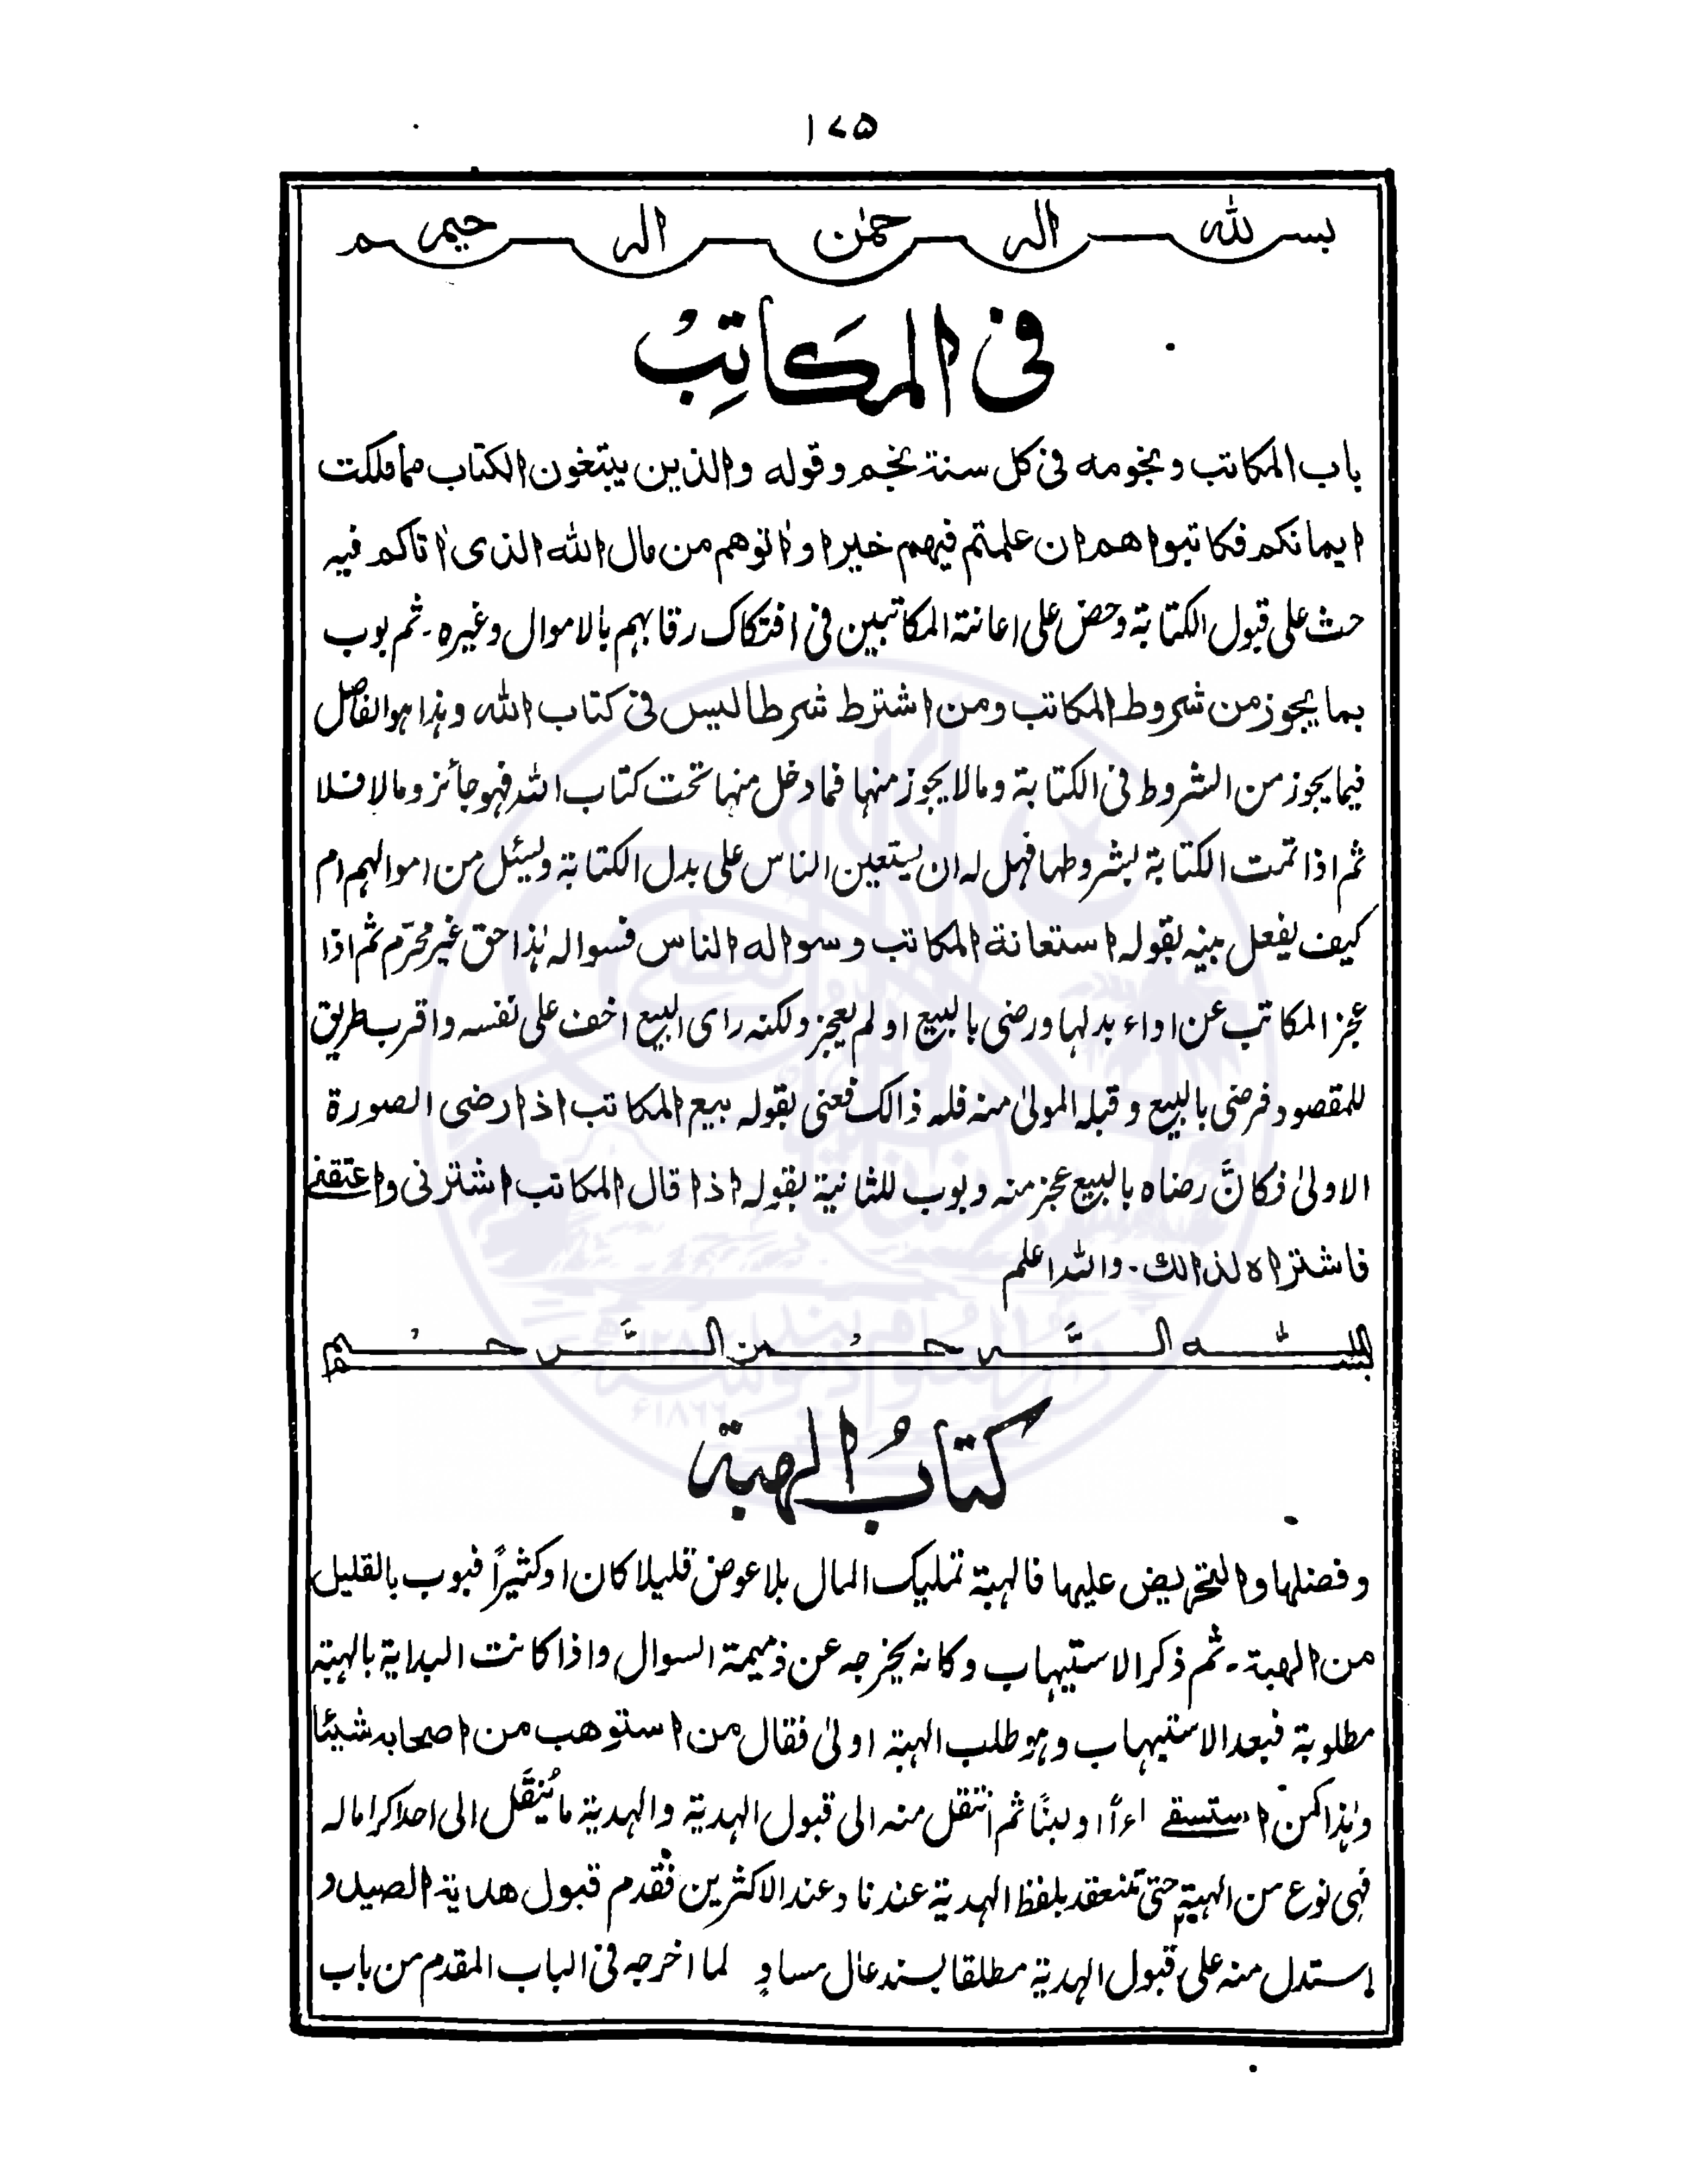 ١٧٥
بسم الله الرحمٰن الرحيم
فى المكاتبُ
باب المكاتب ونجومه فى كل سنة نجم وقوله والذين يبتغون الكتاب مما ملكت
ايمانكم فكاتبوا هم ان علمتم فيهم خيرا واٰتوهم من مال الله الذى اٰتاكم فيه
حث على قبول الكتابة وحض على اعانة المكاتبين فى افتكاك رقابهم بالاموال وغيره ۔ ثم بوب
بما يجوز من شروط المكاتب ومن اشترط شرطا ليس فى كتاب الله وهذا هو الفاصل
فيما يجوز من الشروط فى الكتابة ومالا يجوز منها فما دخل منها تحت كتاب الله فهو جائز ومالا فلا
ثم اذا تمت الكتابة بشروطها فهل له ان يستعين الناس على بدل الكتابة ويسئل من اموالهم ام
كيف يفعل بينه بقوله استعانة المكاتب وسواله الناس فسواله هٰذا حق غير محرّم ثم اذا
عجز المكاتب عن اداء بدلها ورضى بالبيع او لم يعجز ولكنه راى البيع اخف على نفسه واقرب طريق
للمقصود فرضى بالبيع وقبله المولىٰ منه فله ذالك فعنى بقوله بيع المكاتب اذا رضى الصورة
الاولىٰ فكانَّ رضاه بالبيع عجز منه وبوب للثانية بقوله اذا قال المكاتب اشترنى واعتقنى
فاشتراه لذالك ۔ والله اعلم
بسم الله الرَّحمن الرَّحيم
كتابُ الهبة
وفضلها والتحريض عليها فالهبة تمليك المال بلا عوض قليلا كان او كثيراً فبوب بالقليل
من الهبة ۔ ثم ذكر الاستيهاب وكانه يخرجه عن ذميمة السوال واذا كانت البداية بالهبة
مطلوبة فبعد الاستيهاب وهو طلب الهبة اولىٰ فقال من استوهب من اصحابه شيئا
وهٰذا كمن استسقى اءاً او لبنًا ثم انتقل منه الى قبول الهدية والهدية ما يُنقَّل الى احد اكراما له
فهى نوع من الهبة حتى تنعقد بلفظ الهدية عندنا وعند الاكثرين فقدم قبول هدية الصيد و
استدل منه على قبول الهدية مطلقا بسند عال مساوٍ لما اخرجه فى الباب المقدم من باب